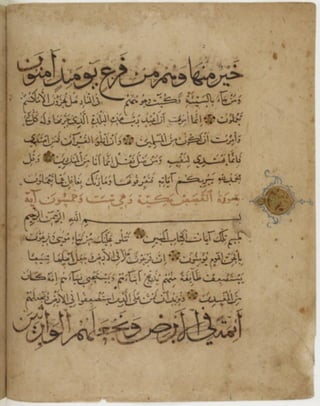 خير منها وهم من فزع يومئذ آمنون
ومن جاء بالسيئة فكبت وجوههم في النار هل تجزون إلا ما كنتم
تعملون إنما أمرت أن أعبد رب هذه البلدة الذي حرمها وله كل شيء
وأمرت أن أكون من المسلمين وأن أتلو القرآن فمن اهتدى
فإنما يهتدي لنفسه ومن ضل فقل إنما أنا من المنذرين وقل
الحمد لله سيريكم آياته فتعرفونها وما ربك بغافل عما تعملون
سورة القصص مكية وهي وثمنون آية
بسم الله الرحمن الرحيم
طسم تلك آيات الكتاب المبين نتلو عليك من نبإ موسى وفرعون
بالحق لقوم يؤمنون إن فرعون علا في الأرض وجعل أهلها شيعا
يستضعف طائفة منهم يذبح أبناءهم ويستحيي نساءهم إنه كان
من المفسدين ونريد أن نمن على الذين استضعفوا في الأرض ونجعلهم
أئمة في الأرض ونجعلهم الوارثين